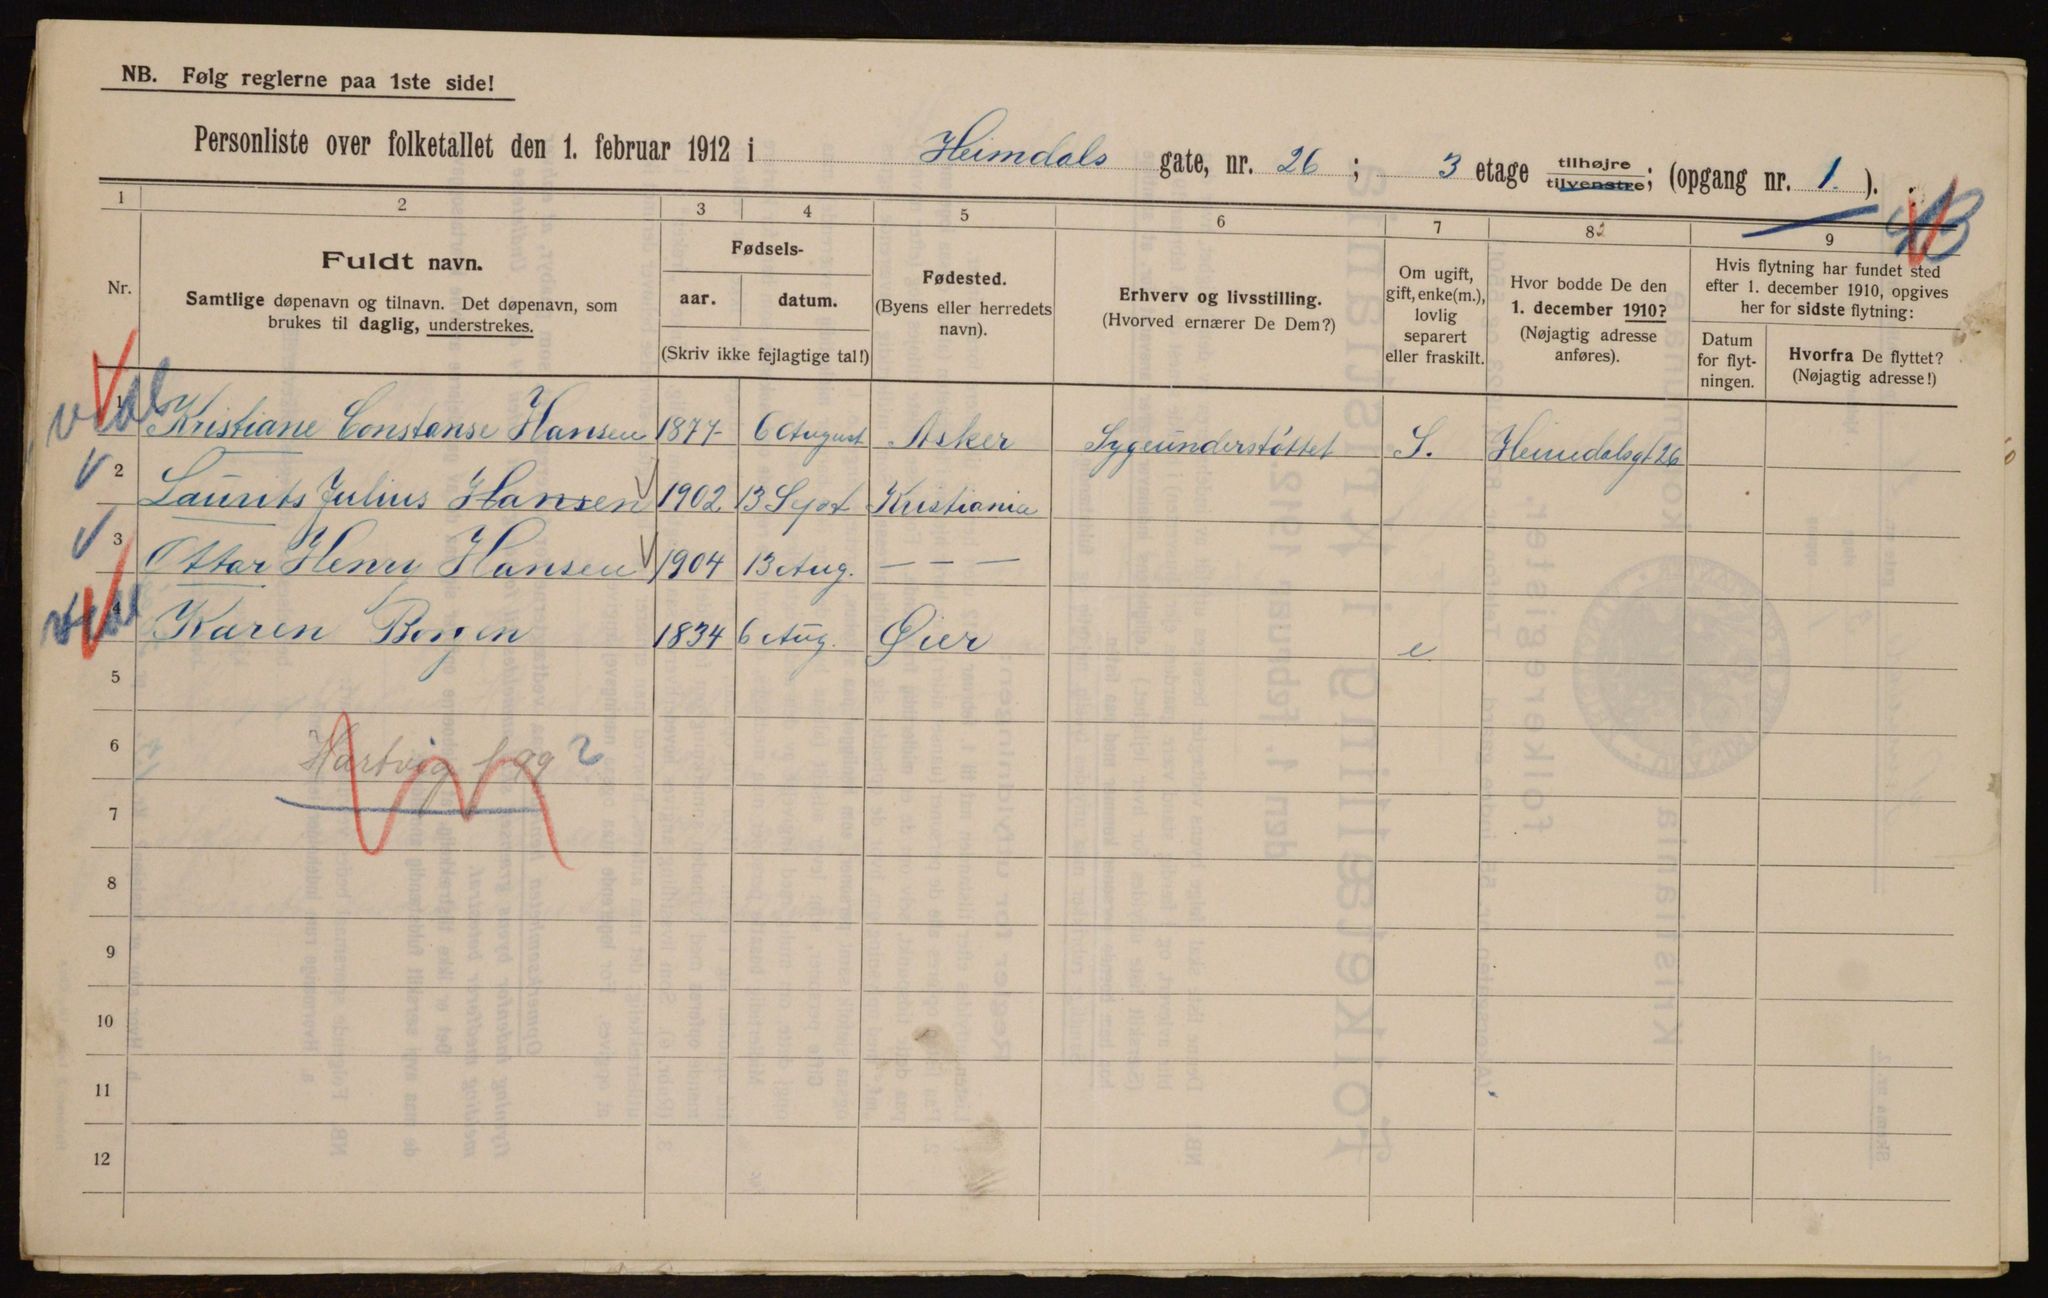 NB. Følg reglerne paa 1ste side!
Personliste over folketallet den 1. februar 1912 i Heimdals gate, nr. 26; 3 etage tilhøjre tilvenstre; (opgang nr. 1.).
1 2 3 4 5 6 7 8 9
Nr.
Fuldt navn.
Samtlige døpenavn og tilnavn. Det døpenavn, som
brukes til daglig, understrekes.
Fødsels-
aar. datum.
(Skriv ikke fejlagtige tal!)
Fødested.
(Byens eller herredets
navn).
Erhverv og livsstilling.
(Hvorved ernærer De Dem?)
Om ugift,
gift, enke(m.),
lovlig
separert
eller fraskilt.
Hvor bodde De den
1. december 1910?
(Nøjagtig adresse
anføres).
Hvis flytning har fundet sted
efter 1. december 1910, opgives
her for sidste flytning:
Datum
for flyt-
ningen.
Hvorfra De flyttet?
(Nøjagtig adresse!)
1 Kristiane Constanse Hansen 1877 6 August Asker Sygeunderstøttet S. Heimdalsgt 26
2 Laurits Julius Hansen 1902 13 Sept Kristiania
3 Ottar Henry Hansen 1904 13 Aug. — — —
4 Karen Borgen 1834 6 Aug. Øier e
5
6 Hartvig
7
8
9
10
11
12